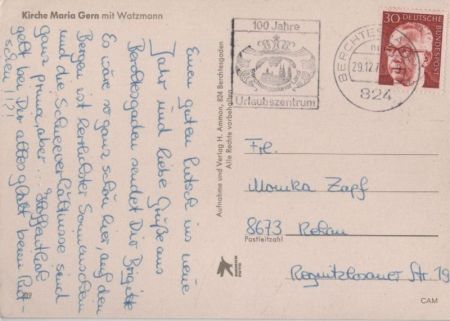 Kirche Maria Gern mit Watzmann
Einen guten Rutsch ins neue
Jahr und liebe Grüße aus
Berchtesgaden sendet Dir Brigitte
Es wäre so ganz schön hier, auf den
Bergen ist herrlichster Sonnenschein
und die Schneeverhältnisse sind
ganz prima, aber... Hoffentlich
geht bei Dir alles glatt beim Rut-
schen!!?!
Aufnahme und Verlag H. Ammon, 824 Berchtesgaden
Alle Rechte vorbehalten
100 Jahre
Urlaubszentrum
BERCHTES
29.12.7
824
30 DEUTSCHE
BUNDESPOST
Frl.
Monika Zapf
8673 Rehau
Postleitzahl
Regnitzlosauer Str. 19
CAM